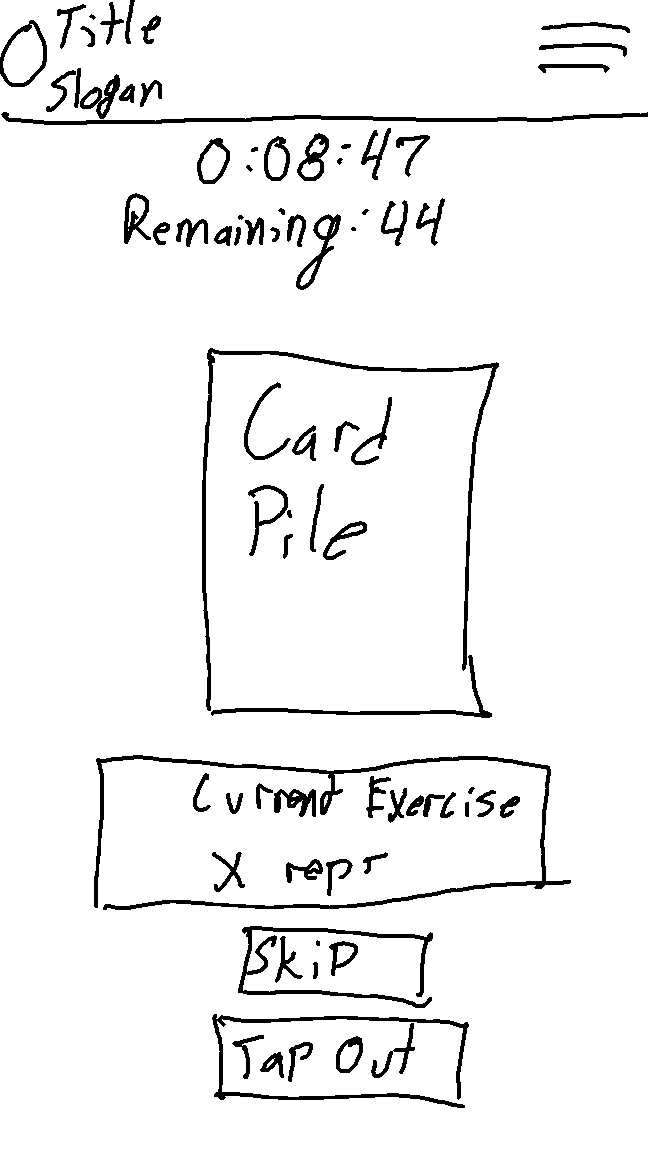 Title
Slogan
0:08:47
Remaining: 44
Card
Pile
Current Exercise
X reps
Skip
Tap Out